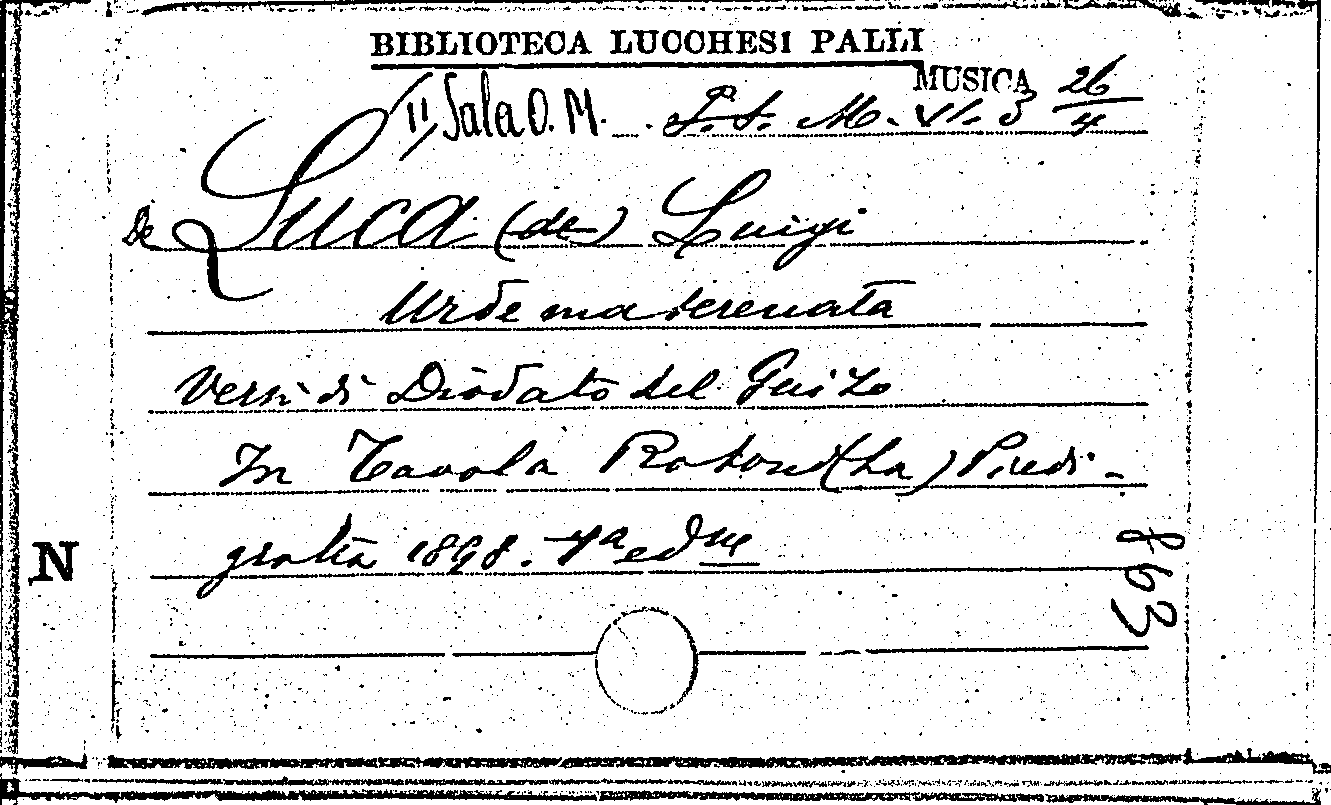 BIBLIOTECA LUCCHESI PALLI
MUSICA
II, Sala O. M. P.S. M. VI. 3 26/4
De Luca (de) Luigi
Urdema serenata
Versi di Diodato del Gaizo
In Tavola Rotond(La) Piedi-
grotta 1898. 7a edne
N
863